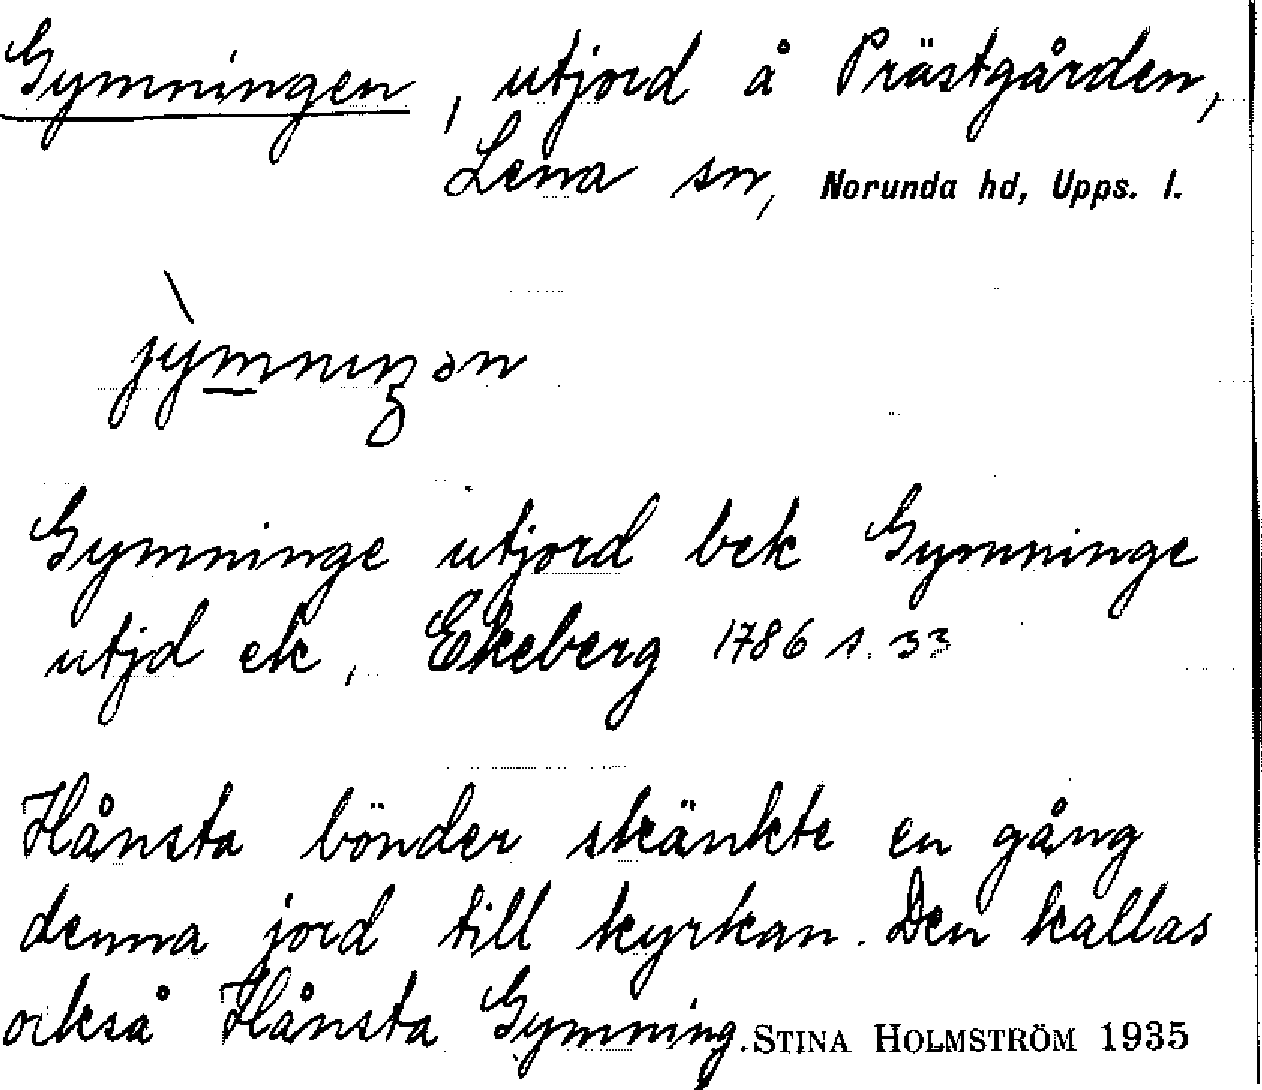 Gymningen, utjord å Prästgården,
Lena sn, Norunda hd, Upps. l.
jỳmnıŋən
Gymninge utjord bek Gymninge
utjd ek, Ekeberg 1786 s. 33
Hånsta bönder skänkte en gång
denna jord till kyrkan. Den kallas
också Hånsta Gymning. STINA HOLMSTRÖM 1935